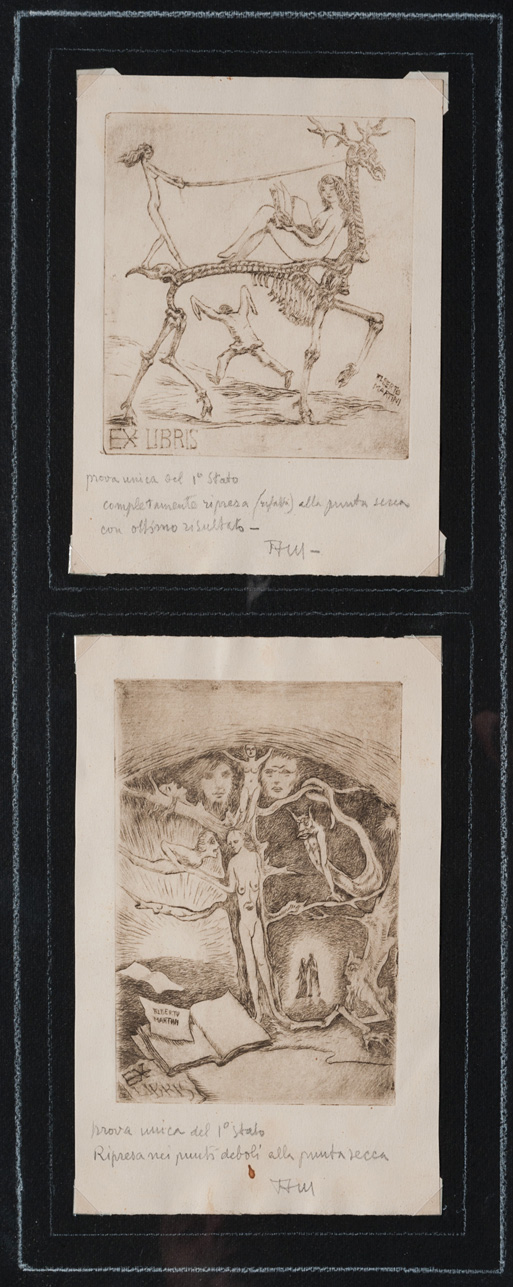 ALBERTO
MARTINI
EX LIBRIS
prova unica del 1º Stato
completamente ripresa (rifatta) alla punta secca
con ottimo risultato –
ALBERTO
MARTINI
EX
LIBRIS
prova unica del 1º Stato
Ripresa nei punti deboli alla punta secca